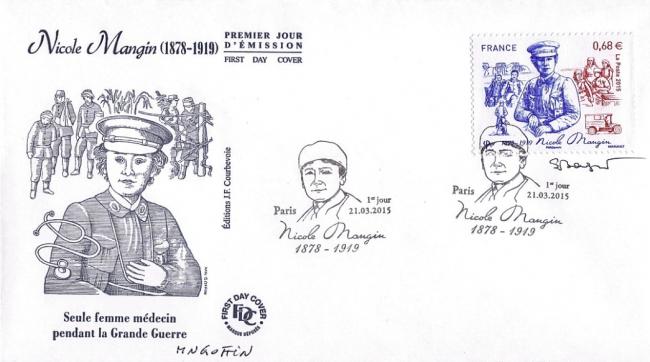 Nicole Mangin (1878-1919)
PREMIER JOUR
D'ÉMISSION
FIRST DAY COVER
FRANCE
0,68 €
La Poste 2015
1878-1919 Nicole Mangin
Éditions J.F. Courbevoie
Paris
1er jour
21.03.2015
Nicole Mangin
1878 - 1919
Paris
1er jour
21.03.2015
Nicole Mangin
1878 - 1919
Seule femme médecin
pendant la Grande Guerre
FIRST DAY COVER
FDC
MARQUE DÉPOSÉE